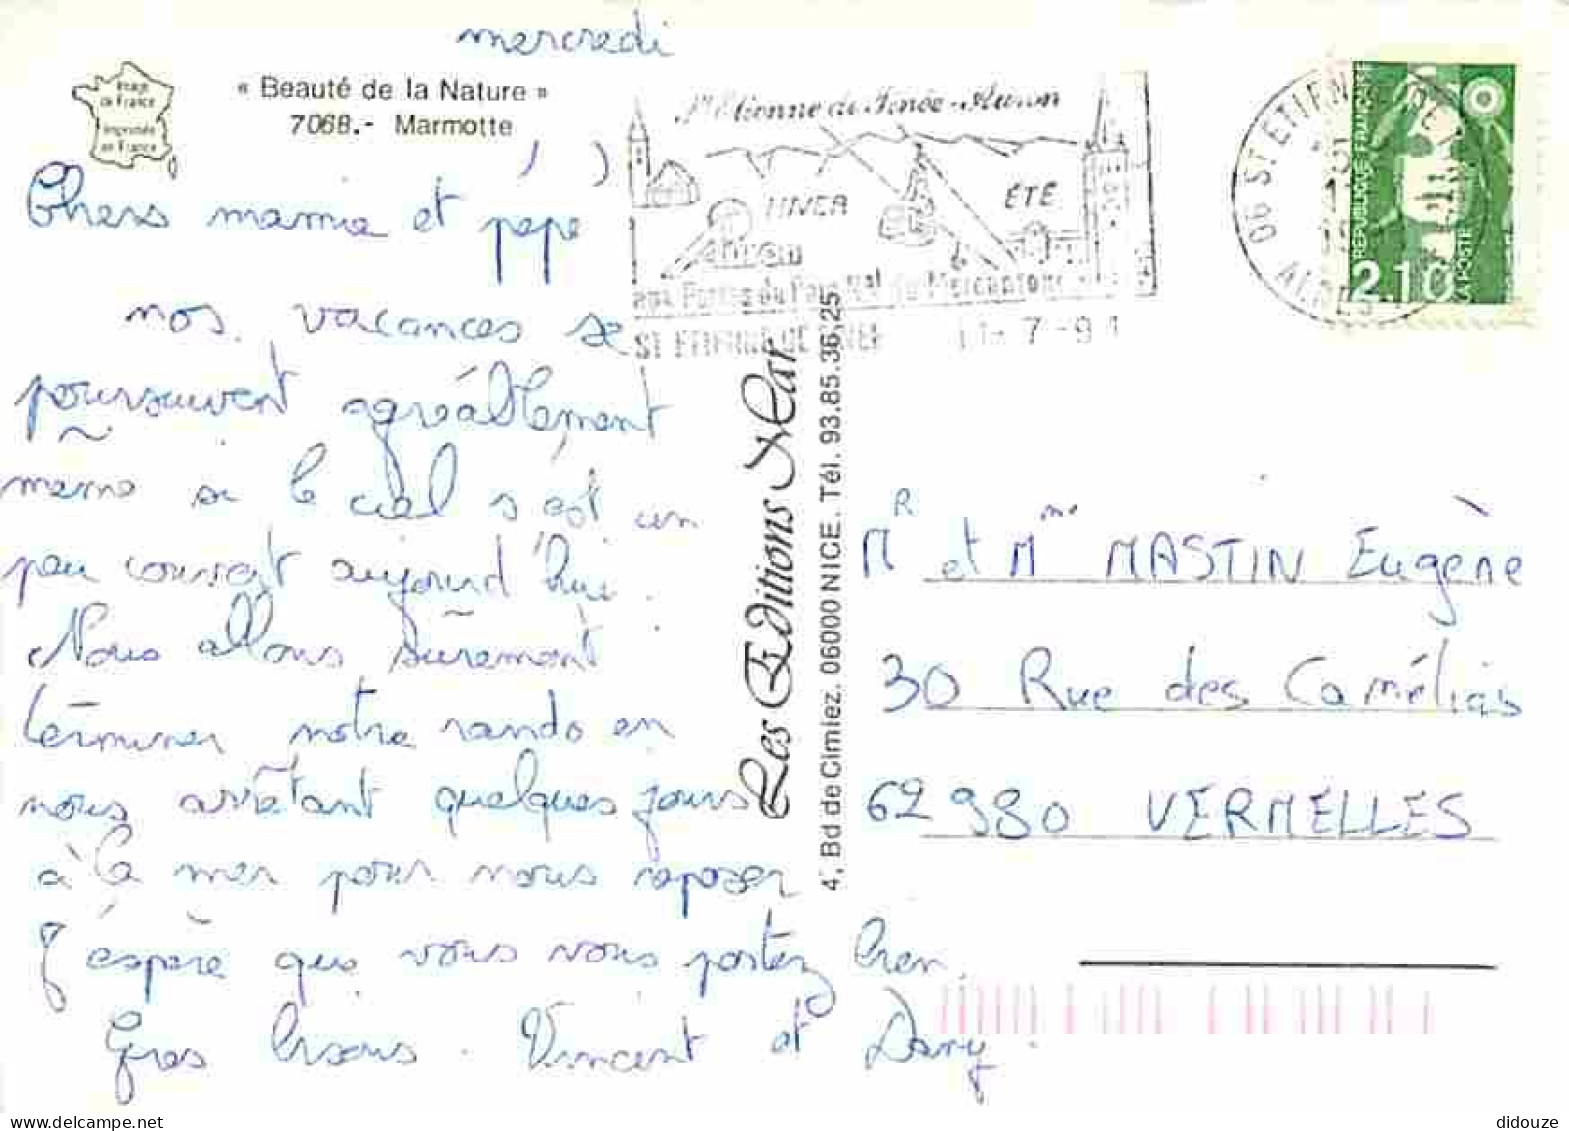 mercredi
Image
de France
Imprimée
en France
« Beauté de la Nature »
7068.- Marmotte
Chers mamie et pépé
nos vacances se
poursuivent agréablement
même si le ciel s'est un
peu couvert aujourd'hui.
Nous allons sûrement
terminer notre rando en
nous arrêtant quelques jours
à la mer pour nous reposer
J'espère que vous vous portez bien.
Gros bisous. Vincent et Dany.
St Etienne de Tinée-Auron
HIVER
ÉTÉ
aux Portes du Parc Nal du Mercantour
ST ETIENNE DE TINEE
7-91
06 ST ETIENNE
ALPES
RÉPUBLIQUE FRANÇAISE
LA POSTE
2,10
Les Editions Mar
4, Bd de Cimiez. 06000 NICE. Tél. 93.85.36.25
MR et Mme MASTIN Eugène
30 Rue des Camélias
62980 VERMELLES
didouze